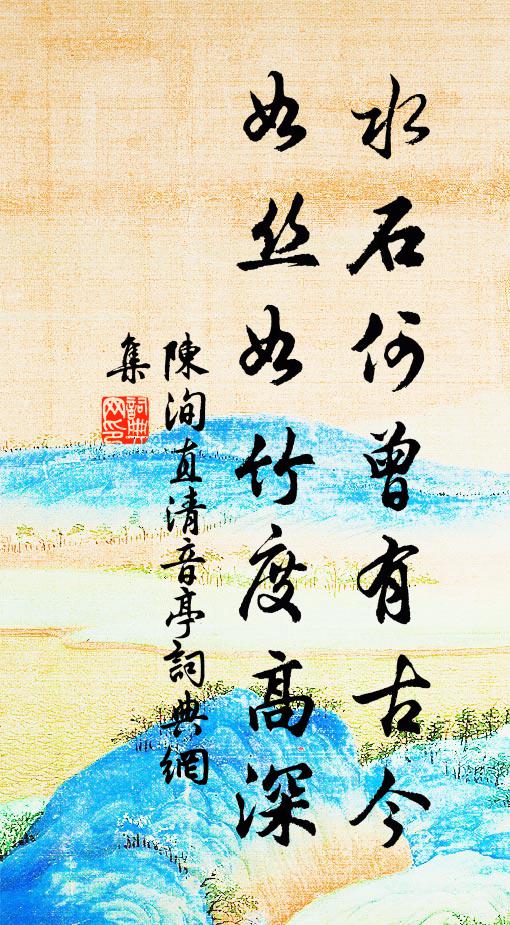 水石何曾有古今
如丝如竹度高深
陳洵直清音亭詞典網
集
詞典
网印